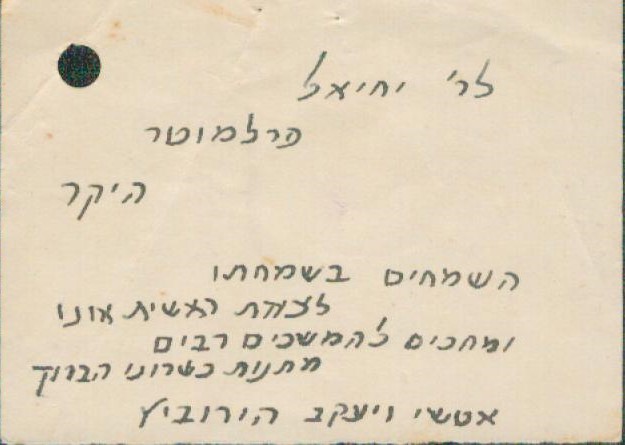 לר' יחיאל
פרלמוטר
היקר
השמחים בשמחתו
לצאת ראשית אונו
ומחכים להמשכים רבים
מתנות כשרונו הברוך
ויעקב הורוביץ